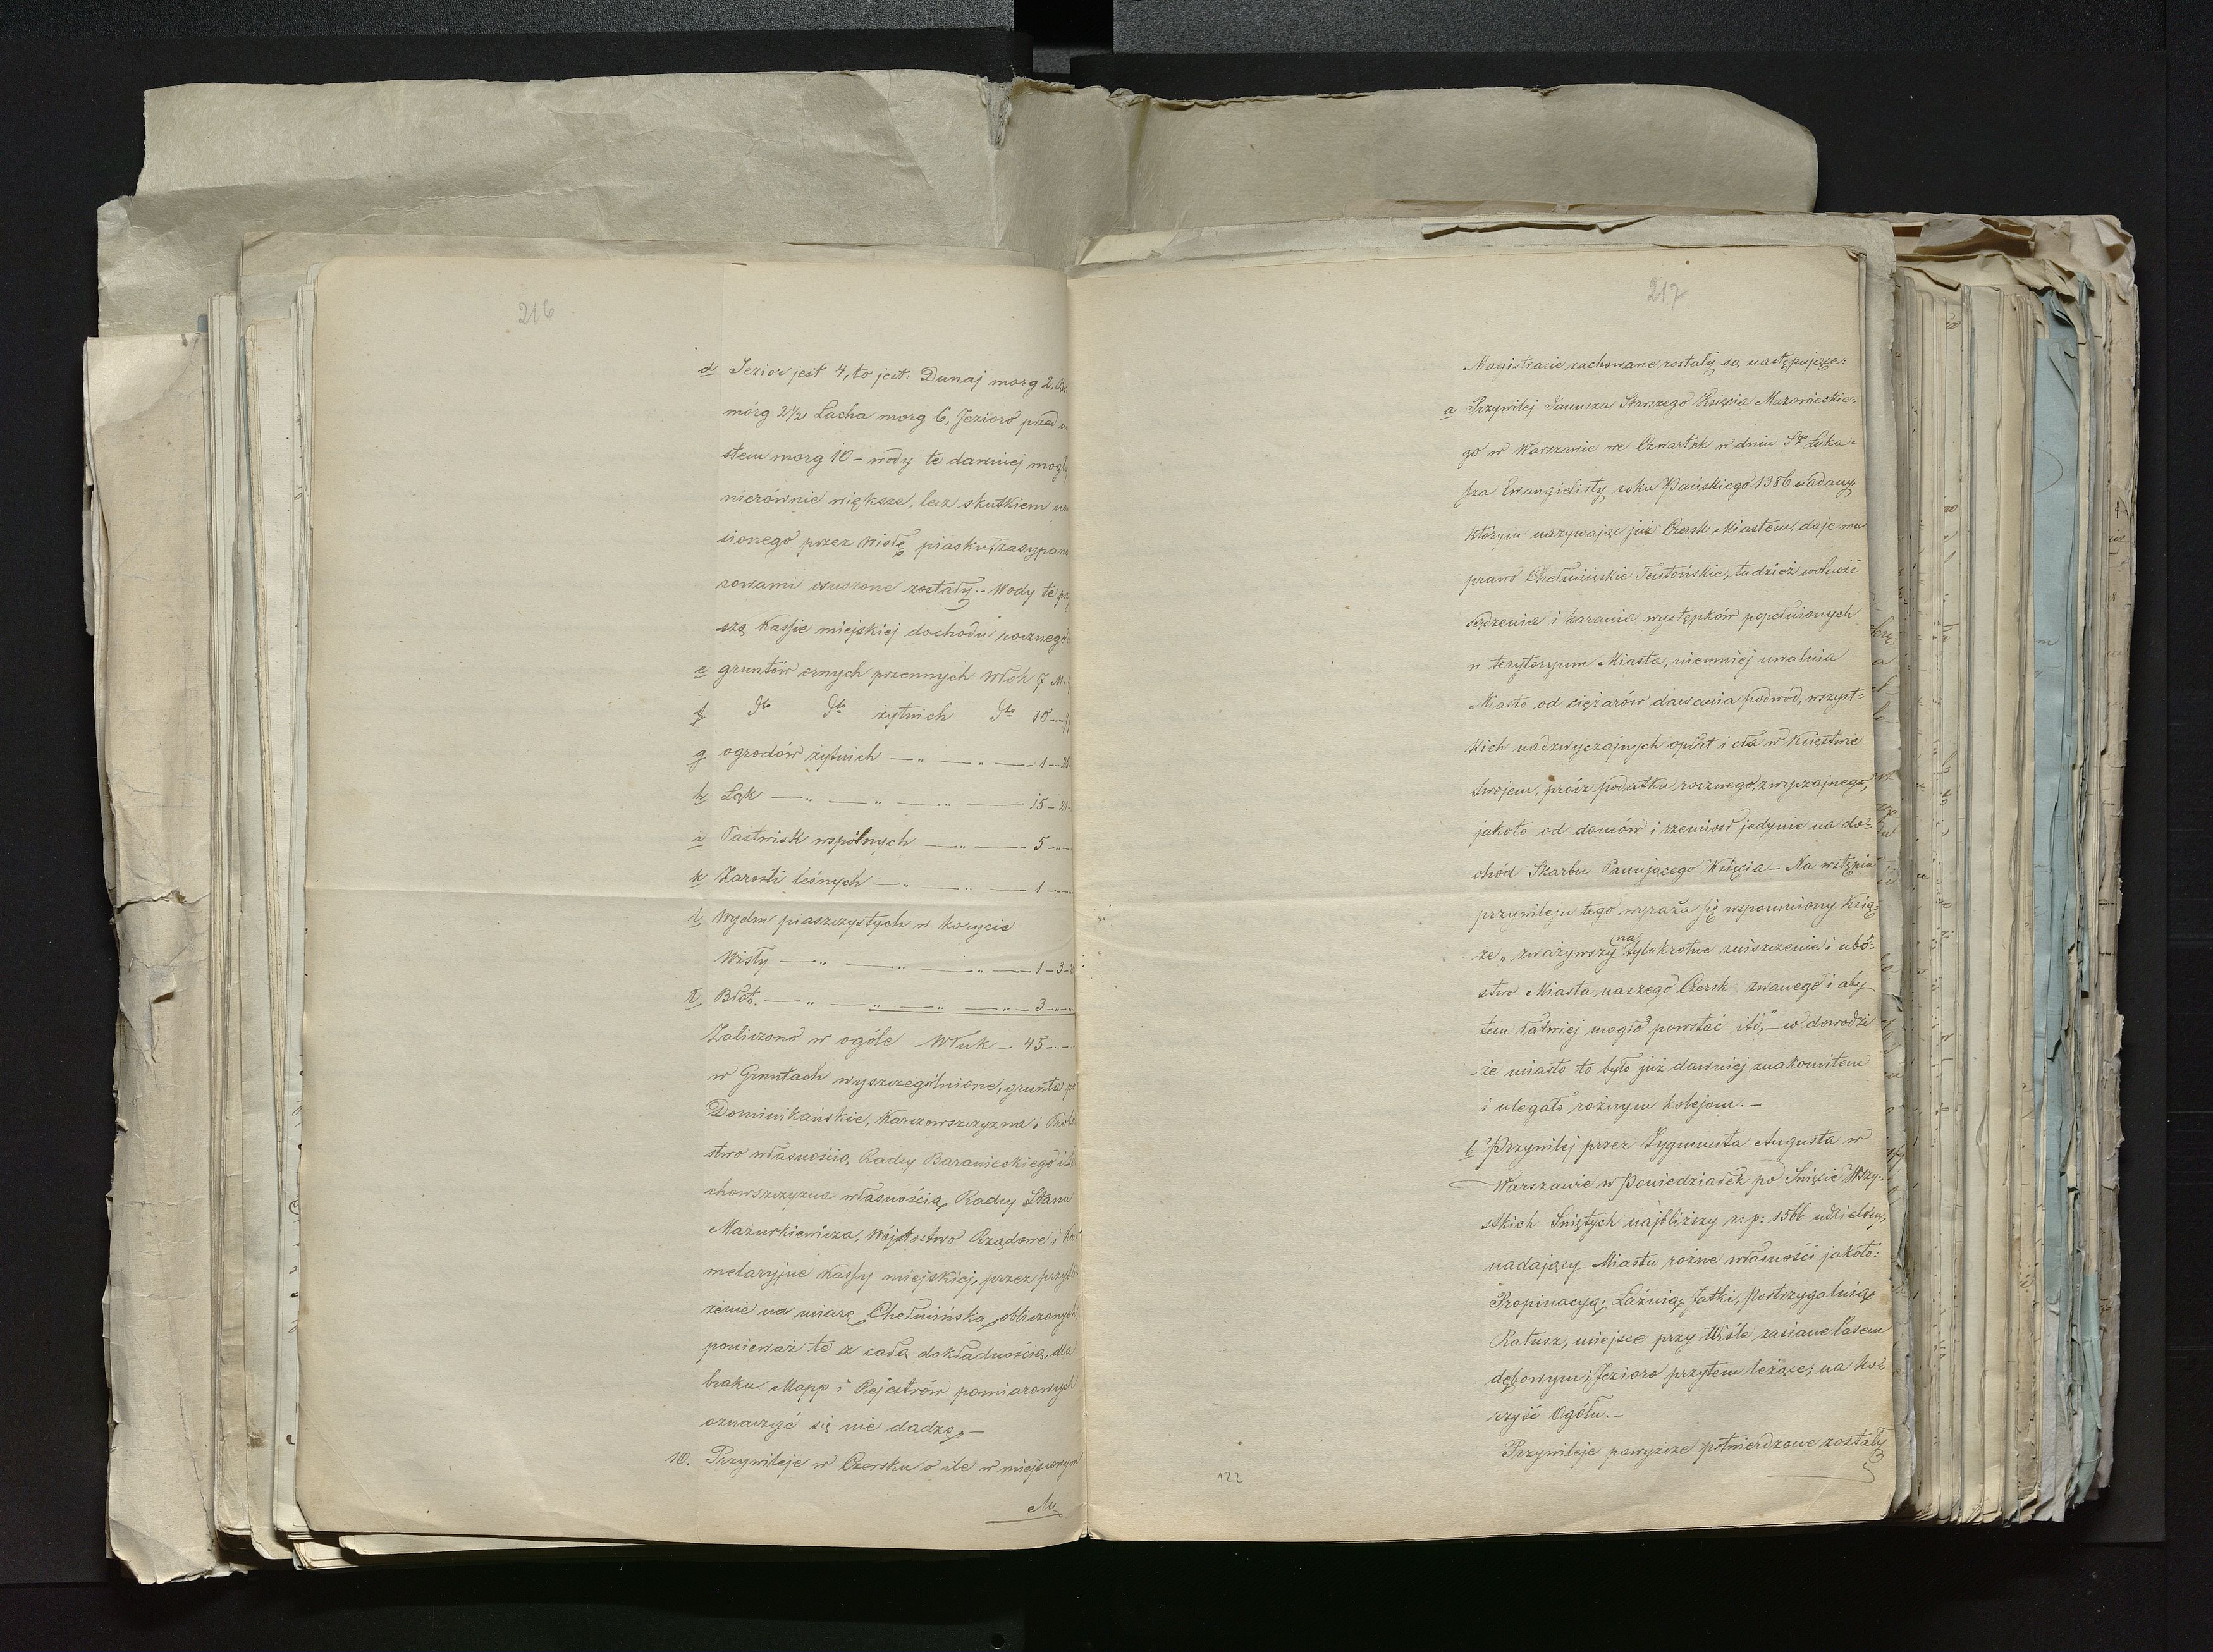 216
d Jezior jest 4, to jest: Dunaj morg 2,
mórg 2½ Łacha morg 6, Jezioro przed
stem morg 10 – wody te dawniej mogły
nierównie większe, lecz skutkiem
sionego przez Wisłę piasku, zasypane
rowami osuszone zostały. – Wody te
szą Kassie miejskiej dochodu rocznego
e gruntów ornych pszennych Włók 7 M.
f Dto Dto żytnich Dto 10 –
g ogrodów żytnich — " — " — 1 –
h Łąk — " — " — " — 15 – 21 –
i Pastwisk wspólnych — " — " 5 –
k Zarośli leśnych — " — " — 1 –
l Wydm piaszczystych w korycie
Wisły — " — " — " — 1 – 3 –
ł Błot. — " — " — " — 3 –
Zaliczono w ogóle Włuk – 45 –
w Gruntach wyszczególnione, grunta
Dominikańskie, Karczowszczyzna i
stwo własnością Radcy Baranieckiego i
chowszczyzna własnością Radcy Stanu
Mazurkiewicza, Wójtostwo Rządowe i
melaryjne Kassy miejskiej, przez
żenie na miarę Chełmińską obliczonych,
ponieważ te z całą dokładnością, dla
braku Mapp i Rejestrów pomiarowych
oznaczyć się nie dadzą. –
10. Przywileje w Czersku o ile w miejscowym
Ma
217
Magistracie zachowane zostały, są następujące:
a Przywilej Janusza Starszego Księcia Mazowieckie-
go w Warszawie we Czwartek w dniu Sgo Łuka-
sza Ewangielisty roku Pańskiego 1386 nadany,
którym nazywając już Czersk Miastem, daje mu
prawo Chełmińskie Teutońskie, tudzież wolność
sądzenia i karania występków popełnionych
w terytoryum Miasta, niemniej uwalnia
Miasto od ciężarów dawania podwód, wszyst-
kich nadzwyczajnych opłat i cła w Księstwie
swojem, prócz podatku rocznego, zwyczajnego,
jakoto od domów i rzemiosł jedynie na do-
chód Skarbu Panującego Księcia – Na wstępie
przywileju tego wyraża się wspomniony Ksią-
że „ zważywszy (na) tylokrotne zniszczenie i ubó-
stwo Miasta naszego Czersk zwanego i aby
tem łatwiej mogło powstać itd," – co dowodzi
że miasto to było już dawniej znakomitem
i ulegało rożnym kolejom. –
b Przywilej przez Zygmunta Augusta w
Warszawie w Poniedziałek po Święcie Wszy-
stkich Świętych najbliższy r: p: 1566 udzielony,
nadający Miastu rożne własności jakoto:
Propinacyą, Łaźnią, Jatki, Postrzygalnią,
Ratusz, miejsce przy Wiśle zasiane lasem
dębowym i Jezioro przytem leżące, na kor-
rzyść Ogółu. –
Przywileje powyższe potwierdzone zostały
122